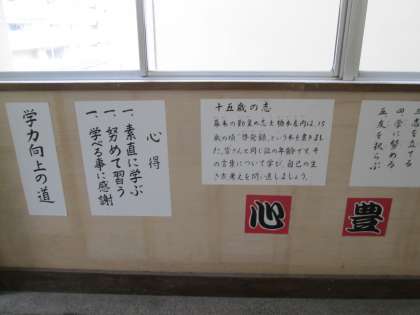 三志を立てる
四学に努める
五友を択ぶ
十五歳の志
幕末の勤皇の志士橋本左内は、15
歳の頃「啓発録」という本を書きまし
た。皆さんと同じ位の年齢です。そ
の言葉について学び、自己の生
き方考えを問い直しましょう。
心得
一、素直に学ぶ
一、努めて習う
一、学べる事に感謝
学力向上の道
豊
心